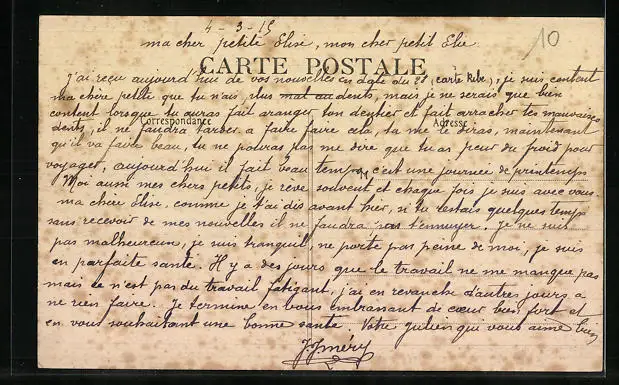 4-3-15
10
ma cher petite Elise, mon cher petit Elie.
CARTE POSTALE
J'ai reçu aujourd'hui de vos nouvelles en date du 28 (carte Rebe), je suis content
ma chère petite que tu n'ais plus mal au dents, mais je ne serais que bien
content lorsque tu auras fait aranger ton dentier et fait arracher tes mauvaises
Correspondance
Adresse
dents, il ne faudra tarder a faire faire cela, tu me le diras, maintenant
qu'il va faire beau, tu ne pouras pas me dire que tu as peur du froid pour
voyager, aujourd'hui il fait beau temps, c'est une journée de printemps
Moi aussi mes chers petits, je rève souvent et chaque fois je suis avec vous.
ma chère Elise, comme je t'ai dis avant hier, si tu restais quelques temps
sans recevoir de mes nouvelles il ne faudra pas t'ennuyer. Je ne suis
pas malheureux, je suis tranquil, ne porte pas peine de moi, je suis
en parfaite santé. Il y a des jours que le travail ne me manque pas
mais ce n'est pas du travail fatigant, j'ai en revanche d'autres jours a
ne rien faire. Je termine en vous embrassant de cœur bien fort et
en vous souhaitant une bonne santé. Votre Julien qui vous aime bien
JJméry